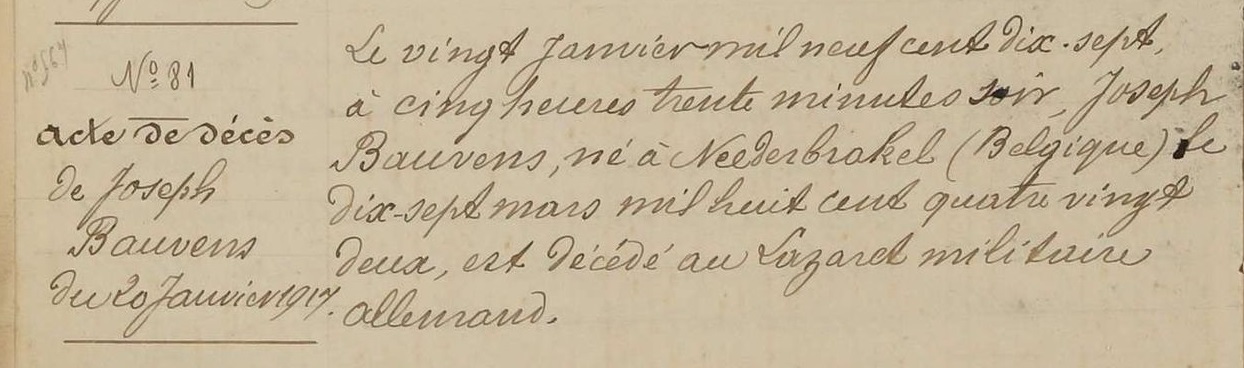 N° 81
acte de décès
de Joseph
Bauvens
du 20 Janvier 1917.
Le vingt Janvier mil neuf cent dix-sept,
à cinq heures trente minutes soir, Joseph
Bauvens, né à Neederbrakel (Belgique) le
dix-sept mars mil huit cent quatre vingt
deux, est décédé au Lazaret militaire
allemand.